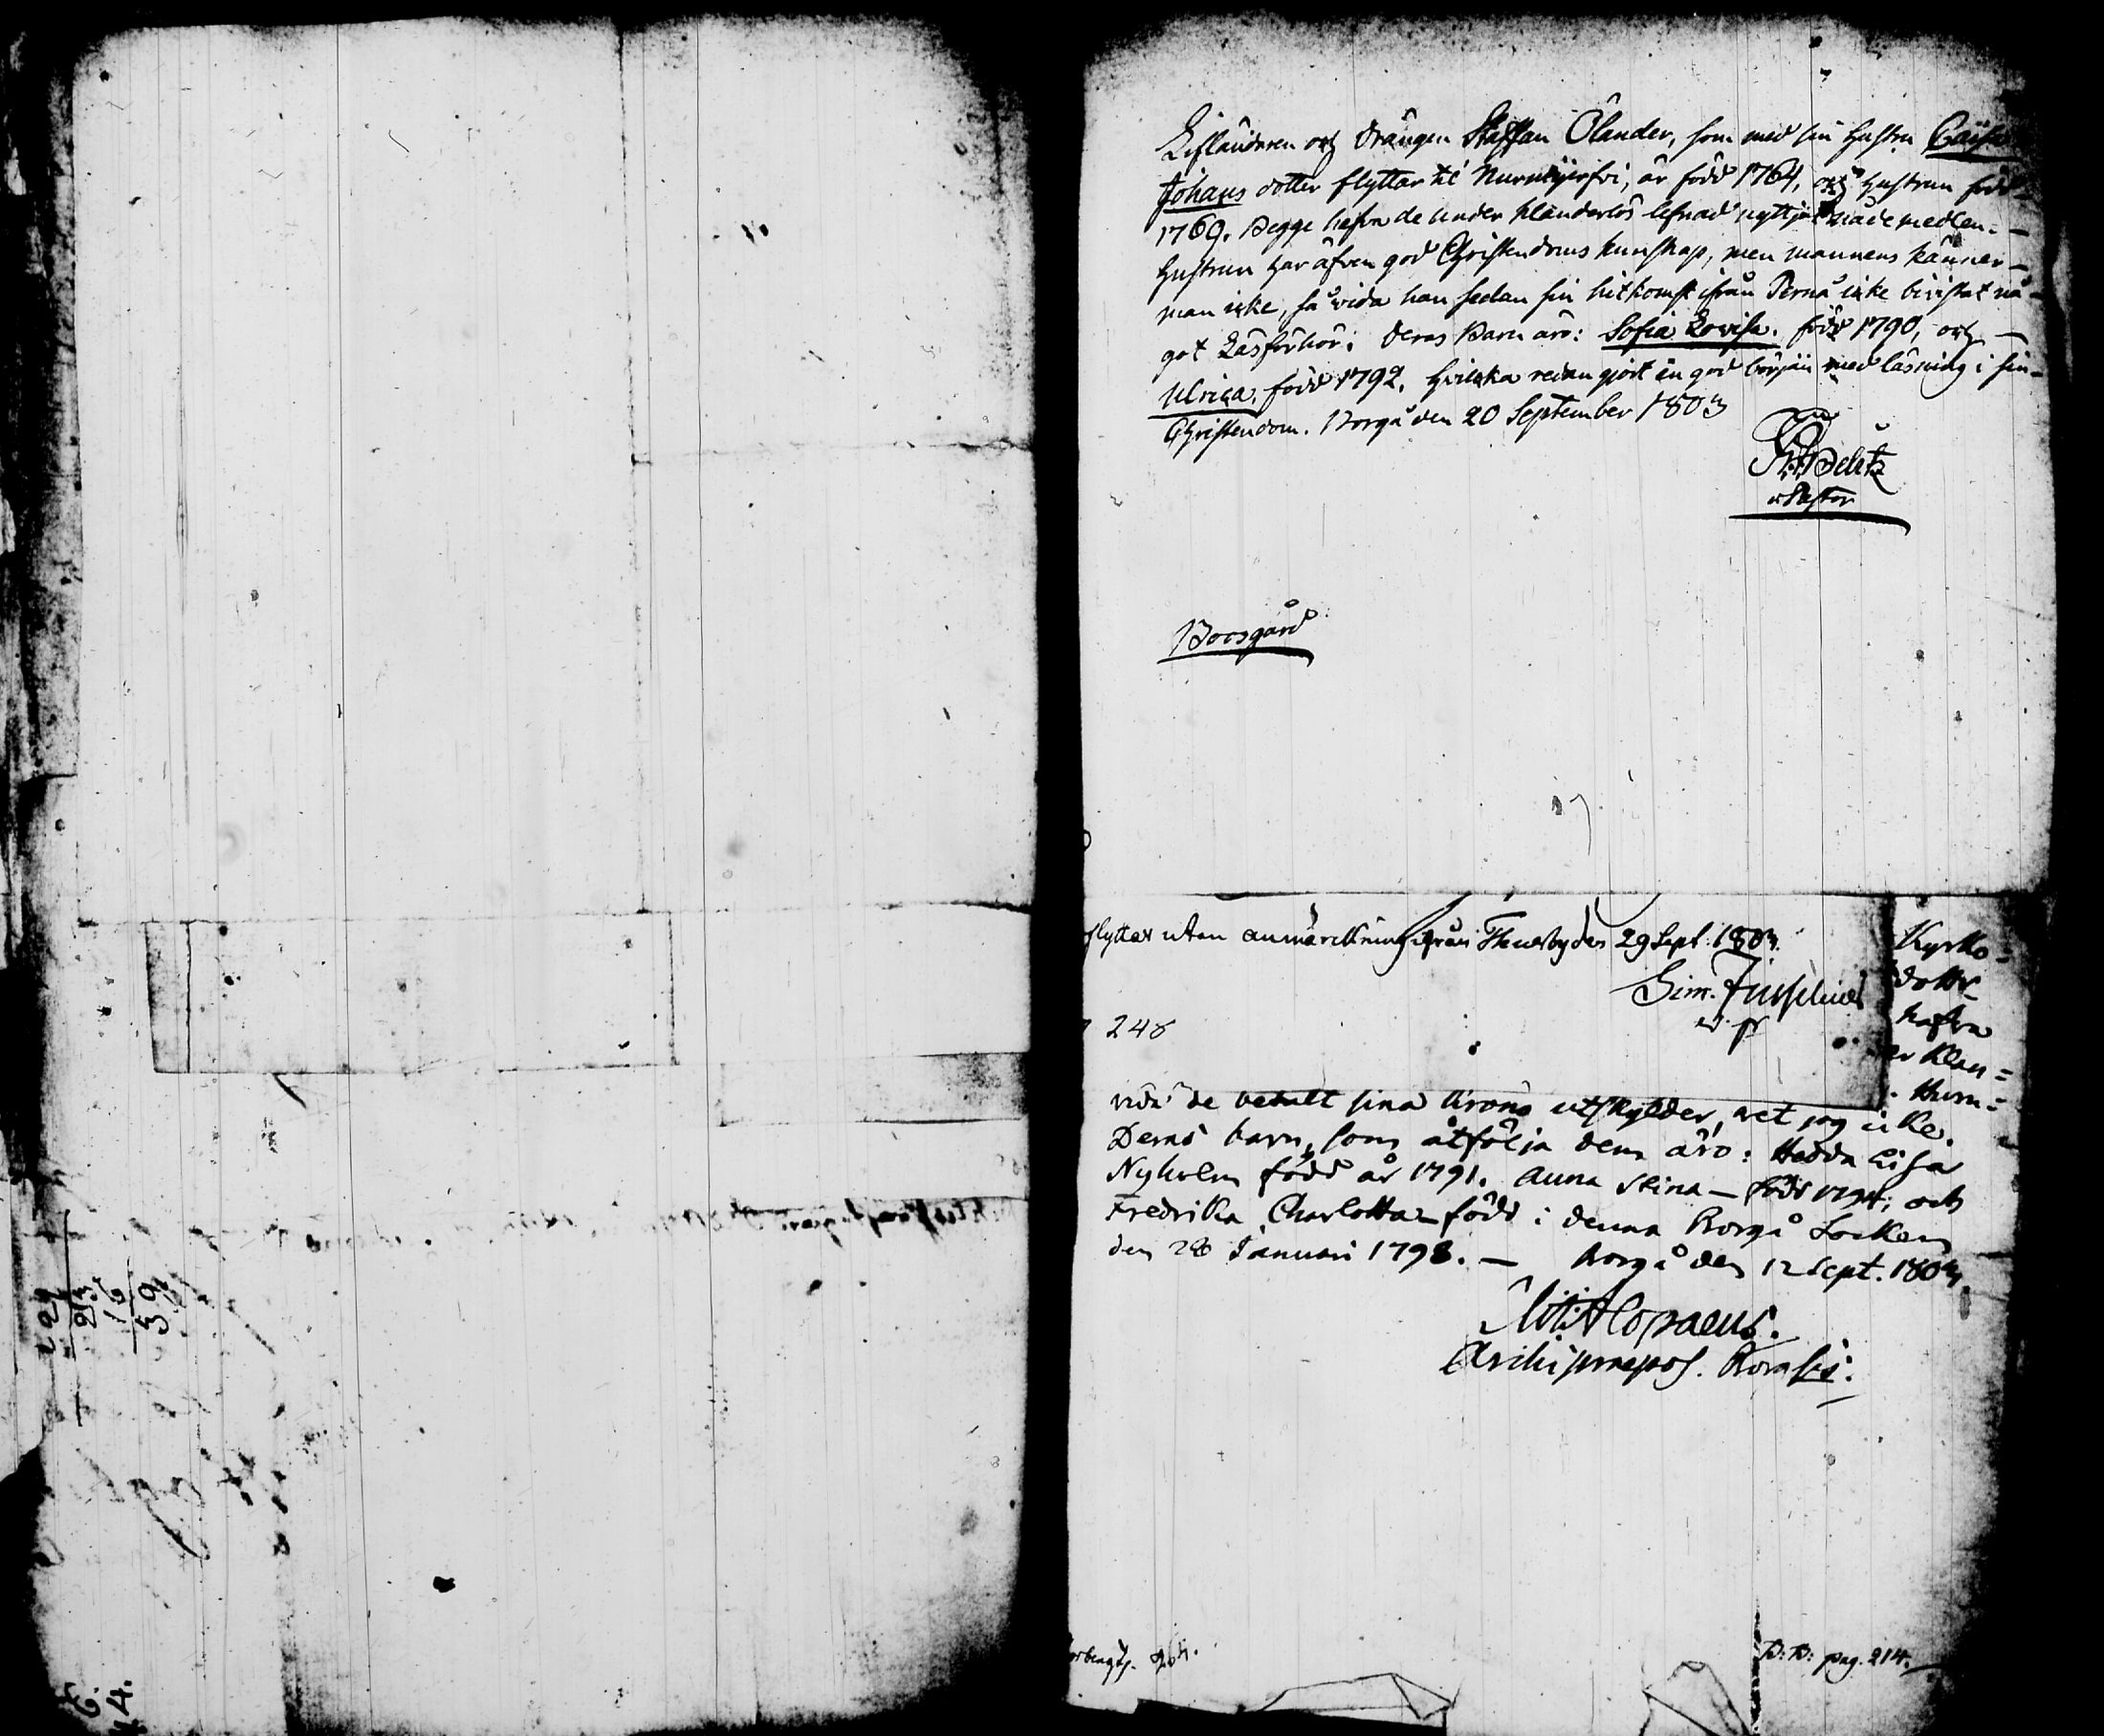 Lifländaren och Drängen Staffan Ölander, som med sin hustru Caisa
Johans dotter flyttar til Nurmijärfvi, är född 1764, och hustrun född
1769. Begge hafva de under klanderlös lefnad nyttjat nådemedlen. —
Hustrun har äfven god Christendoms kunskap, men mannens känner —
man icke, så vida han sedan sin hitkomst ifrån Perno icke bivistat nå-
got Läsförhör. Deras Barn äro: Sofia Lovisa. född 1790, och —
Ulrica. född 1792. hvilcka redan gjort en god början med läsning i sin
Christendom. Borgå den 20 September 1803
v Pastor
Boosgård
flyttar utan anmärckning ifrån Thusby den 29 Sept: 1803.
Sim.
v. p
248
Kyrko=
dotter
hafva
er Klan=
Huru=
vida de betalt sina Krono utskylder, vet jag icke.
Deras barn, som åtfölja dem äro: Hedda Lisa
Nyholm född år 1791. Anna Stina — född; och
Fredrika Charlotta — född i denna Borgå Socken
den 28 Januari 1798. — Borgå den 12 Sept. 1803.
Alopaeus.
Archipraepos.
29
23
16
39
B: B: pag. 214.